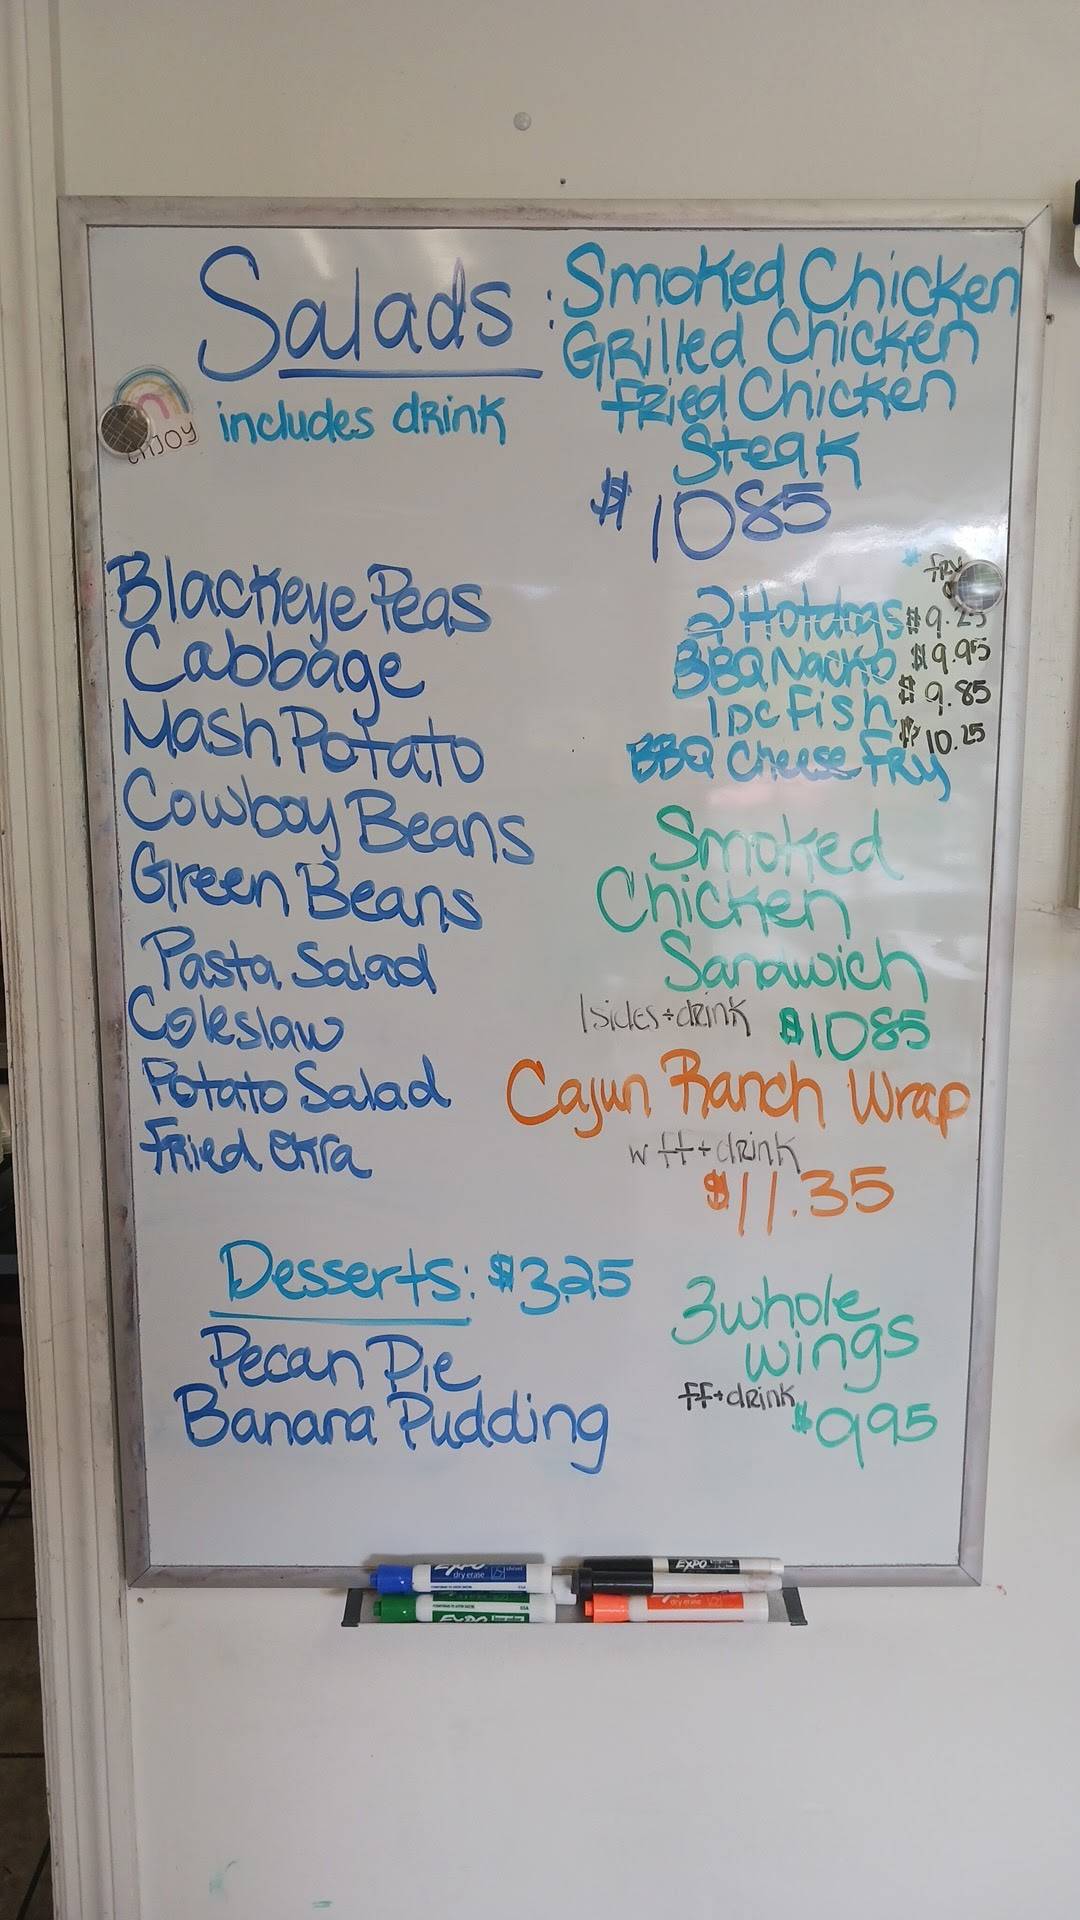 Salads:
includes drink
Smoked Chicken
Grilled Chicken
Fried Chicken
Steak
$1085
ENJOY
Blackeye Peas
Cabbage
Mash Potato
Cowboy Beans
Green Beans
Pasta Salad
Coleslaw
Potato Salad
Fried Okra
Desserts: $3.25
Pecan Pie
Banana Pudding
* fry
2 Hotdogs $9.25
BBQ Nacho $9.95
1 pc Fish $9.85
BBQ Cheese Fry $10.25
Smoked
Chicken
Sandwich
1 sides + drink $1085
Cajun Ranch Wrap
w ff + drink
$11.35
3 whole
wings
ff + drink
$995
EXPO
dry erase
EXPO
EXPO
dry erase